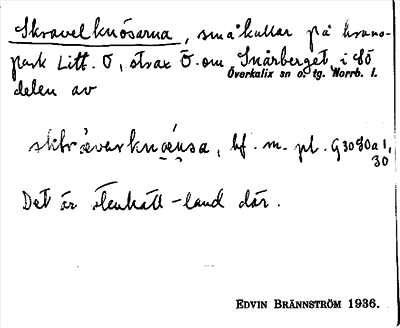 Skravelknösarna, småkullar på krono-
park Litt. O, strax Ö. om Snårberget i sö
Överkalix sn o. tg. Norrb. l.
delen av
bf. m. pl. G3080a1,
30
Det är stenhätt-land där.
EDVIN BRÄNNSTRÖM 1936.